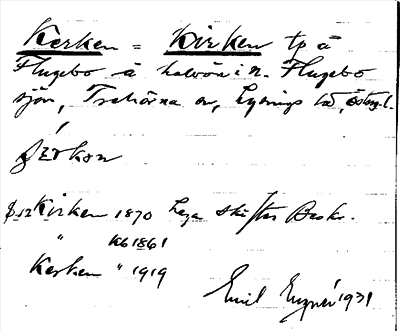 Kerken = Kirken tp å
Flugebo å halvön i n. Flugebo
sjön, Trehörna sn, Lysings hd, Östergl.
Kirken 1870 Laga skiftes Beskr.
" 1861
Kerken " 1919
Emil 1931